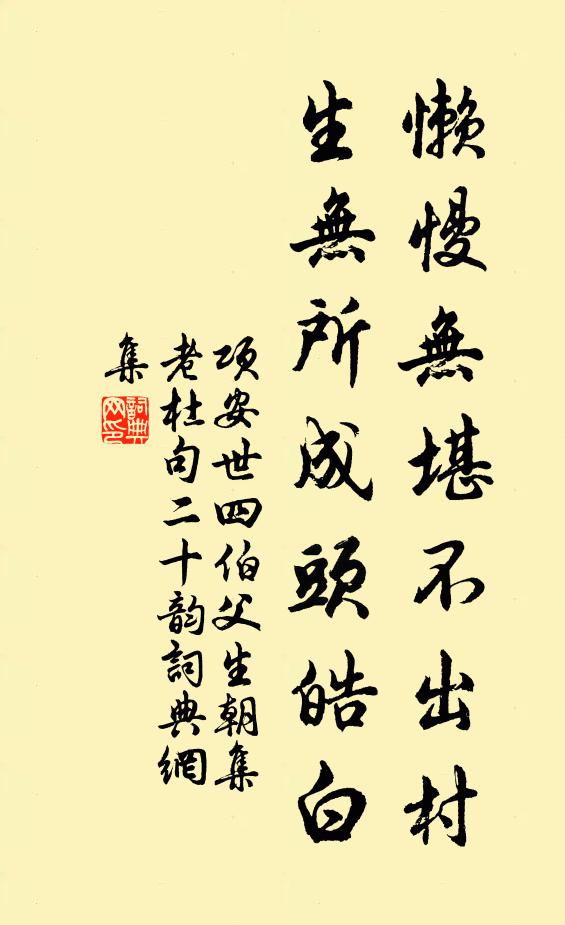 懶慢無堪不出村
生無所成頭皓白
項安世四伯父生朝集
老杜句二十韵詞典網
集
詞典網印